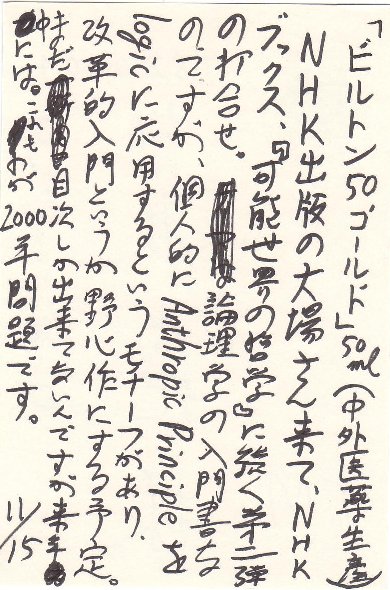 「ビルトン50ゴールド」50ml(中外医薬生産)
NHK出版の大場さん来て、NHK
ブックス、『可能世界の哲学』に続く第二弾
の打合せ。論理学の入門書な
のですが、個人的にAnthropic Principleを
logicに応用するというモチーフがあり、
改革的入門というか野心作にする予定。
まだ目次しか出来てないんですが来年
中には。これもわが2000年問題です。
11/15